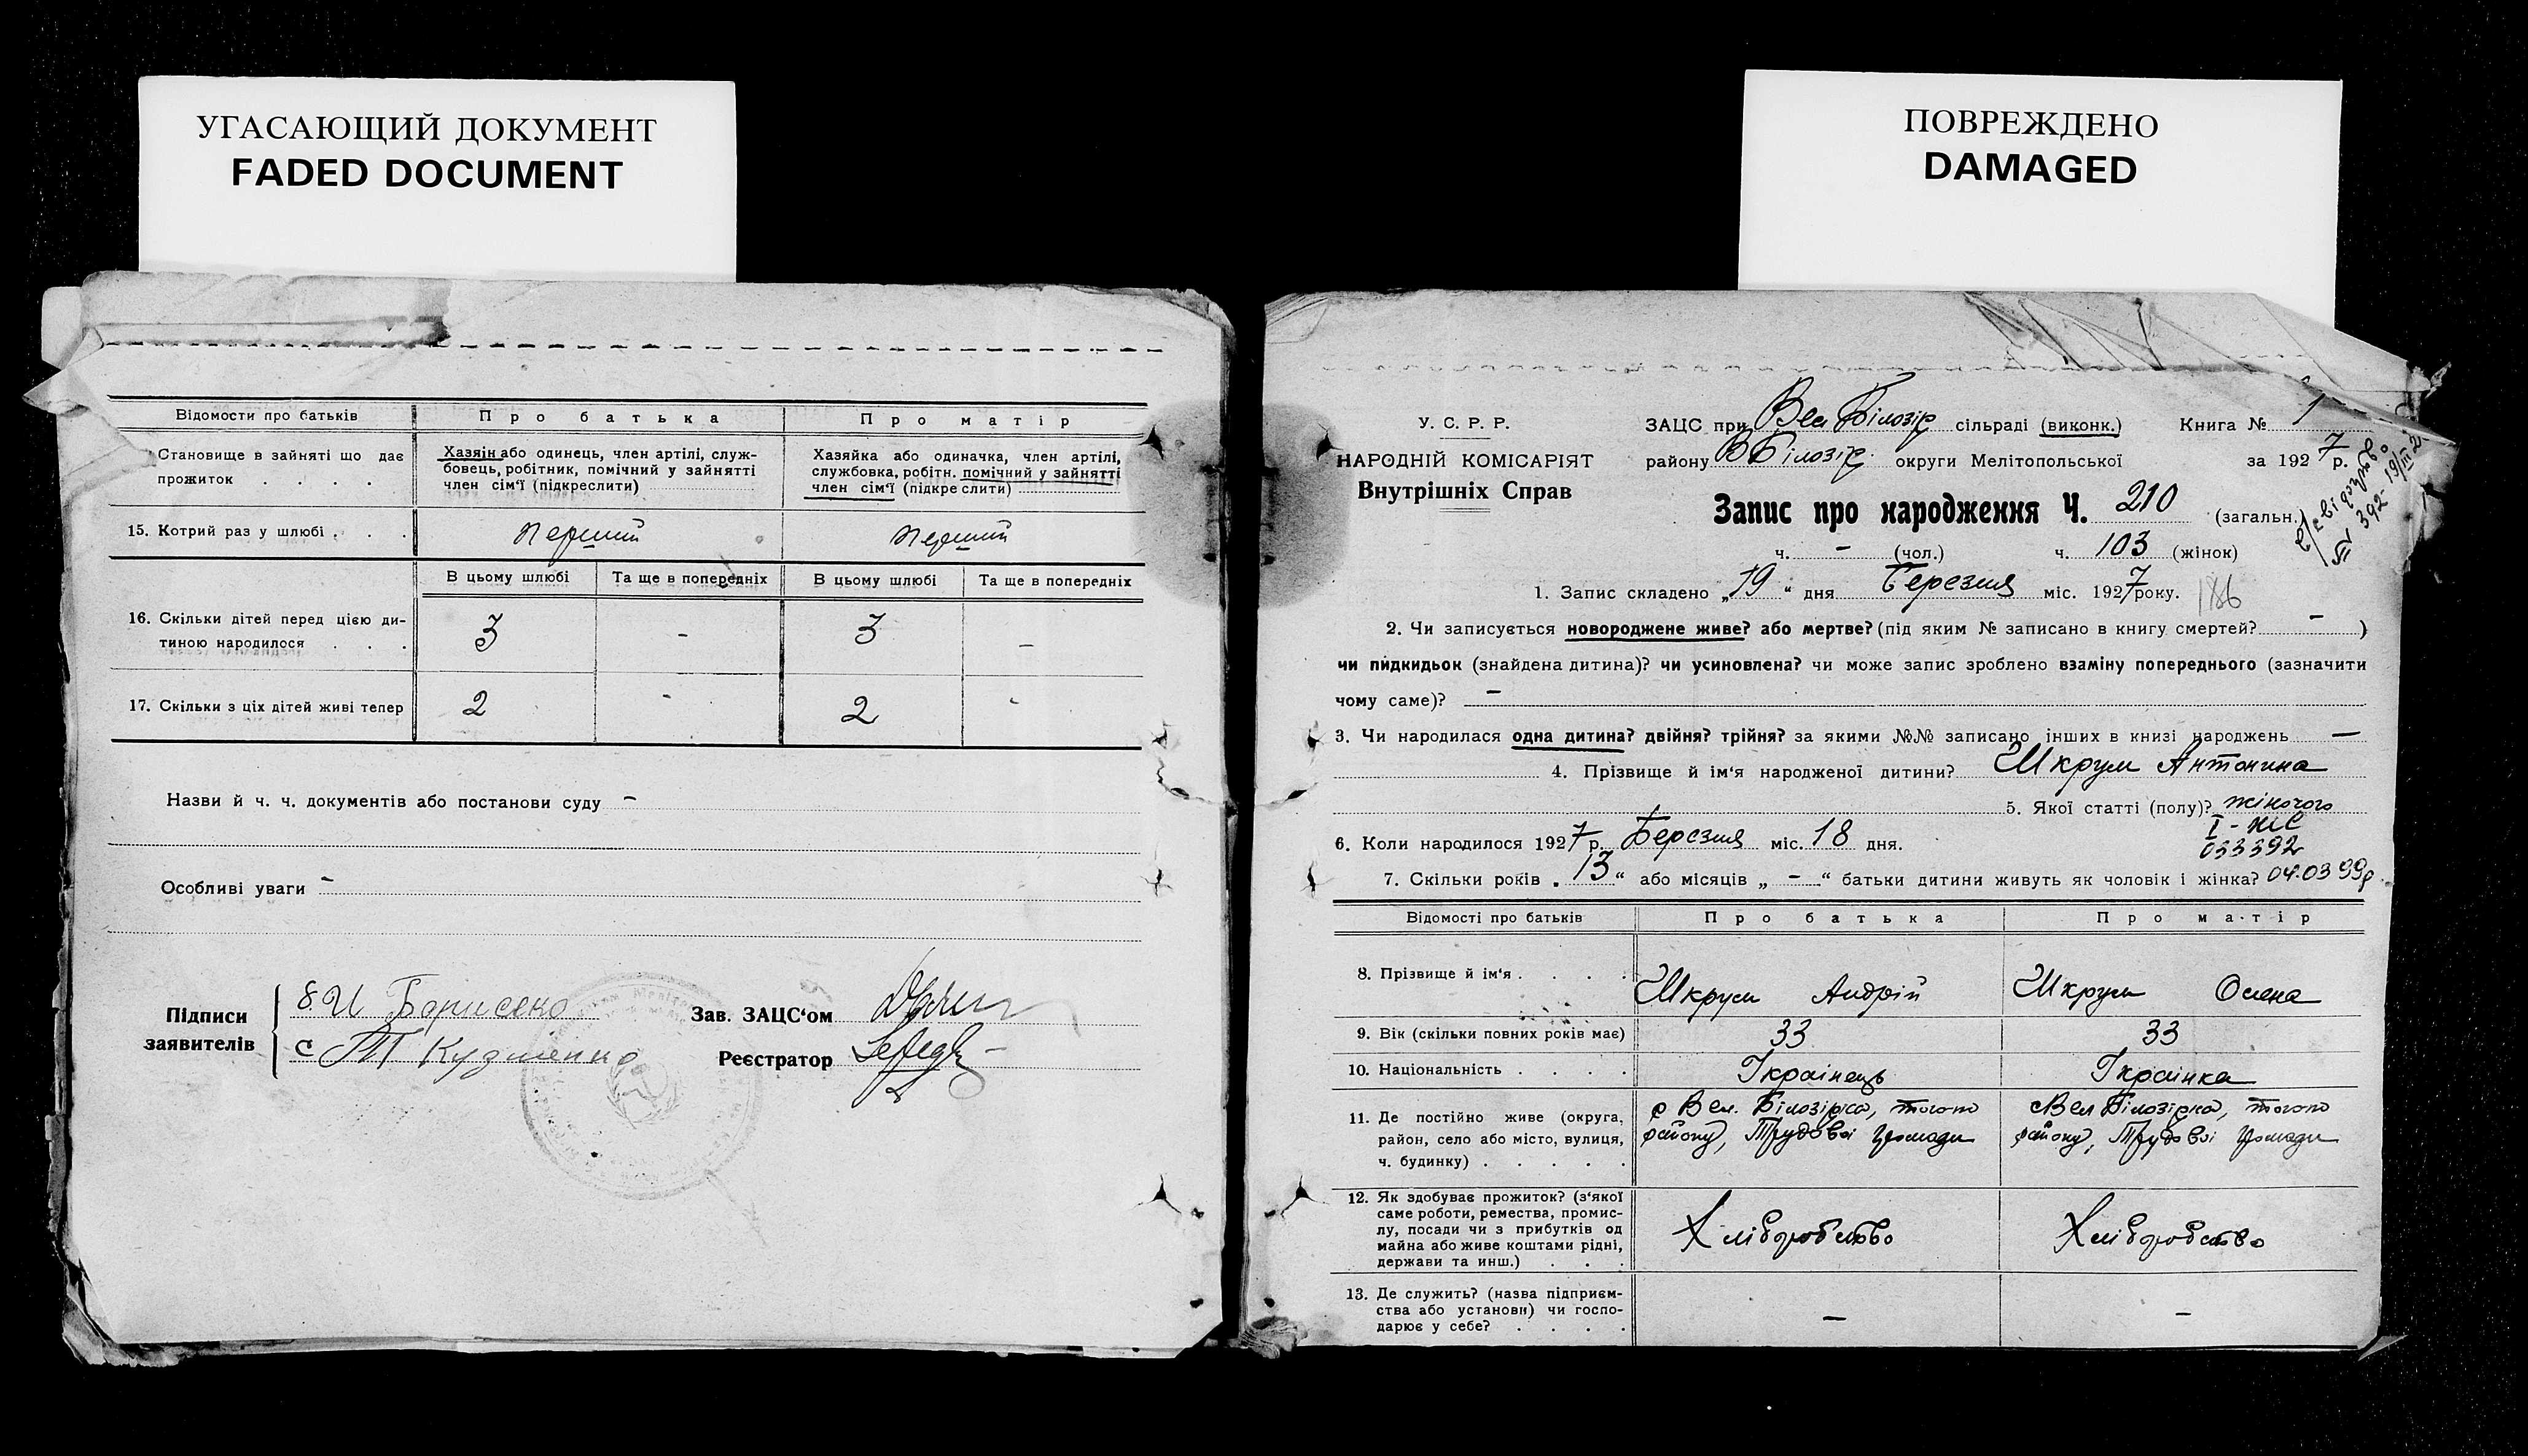 УГАСАЮЩИЙ ДОКУМЕНТ
FADED DOCUMENT
ПОВРЕЖДЕНО
DAMAGED
Відомости про батьків
Про батька
Про матір
Становище в зайняті що дає
прожиток . . . .
Хазяін або одинець, член артілі, служ-
бовець, робітник, помічний у зайнятті
член сім'ї (підкреслити)
Хазяйка або одиначка, член артілі,
службовка, робітн. помічний у зайнятті
член сім'ї (підкре слити)
15. Котрий раз у шлюбі . . .
перший
перший
В цьому шлюбі
Та ще в попередніх
В цьому шлюбі
Та ще в попередніх
16. Скільки дітей перед цією ди-
тиною народилося . . .
3
-
3
-
17. Скільки з ціх дітей живі тепер
2
-
2
-
Назви й ч. ч. документів або постанови суду -
Особливі уваги -
Підписи
заявителів
Борисенко
Кузменко
Зав. ЗАЦС'ом
Реєстратор
У. С. Р. Р.
НАРОДНІЙ КОМІСАРІЯТ
Внутрішніх Справ
ЗАЦС при Вел Білозір сільраді (виконк.) Книга № 1
району В Білозір. округи Мелітопольської за 1927 р.
Запис про народження Ч. 210 (загальн.)
ч. - (чол.) ч. 103 (жінок)
1. Запис складено „19“ дня Березня міс. 1927 року. 186
2. Чи записується новороджене живе? або мертве? (під яким № записано в книгу смертей? - )
чи пидкидьок (знайдена дитина)? чи усиновлена? чи може запис зроблено взаміну попереднього (зазначити
чому саме)? -
3. Чи народилася одна дитина? двійня? трійня? за якими №№ записано інших в книзі народжень -
4. Прізвище й ім'я народженої дитини? Шкрум Антонина
5. Якої статті (полу)? жіночого
I - ЖС
033392
6. Коли народилося 1927 р. Березня міс. 18 дня.
7. Скільки років „13“ або місяців „ - “ батьки дитини живуть як чоловік і жінка? 04.03 99р
Відомості про батьків
Про батька
Про матір
8. Прізвище й ім'я . . . .
Шкрум Андрій
Шкрум Олена
9. Вік (скільки повних років має)
33
33
10. Національність . . . .
Українець
Українка
11. Де постійно живе (округа,
район, село або місто, вулиця,
ч. будинку) . . . . .
с Вел. Білозірка, того
району, Трудової громади
с Вел Білозірка, того
району, Трудової громади
12. Як здобуває прожиток? (з'якої
саме роботи, ремества, промис-
лу, посади чи з прибутків од
майна або живе коштами рідні,
держави та инш.) . . .
Хліборобство
Хліборобство
13. Де служить? (назва підприєм-
ства або установи) чи госпо-
дарює у себе? . . . .
-
-